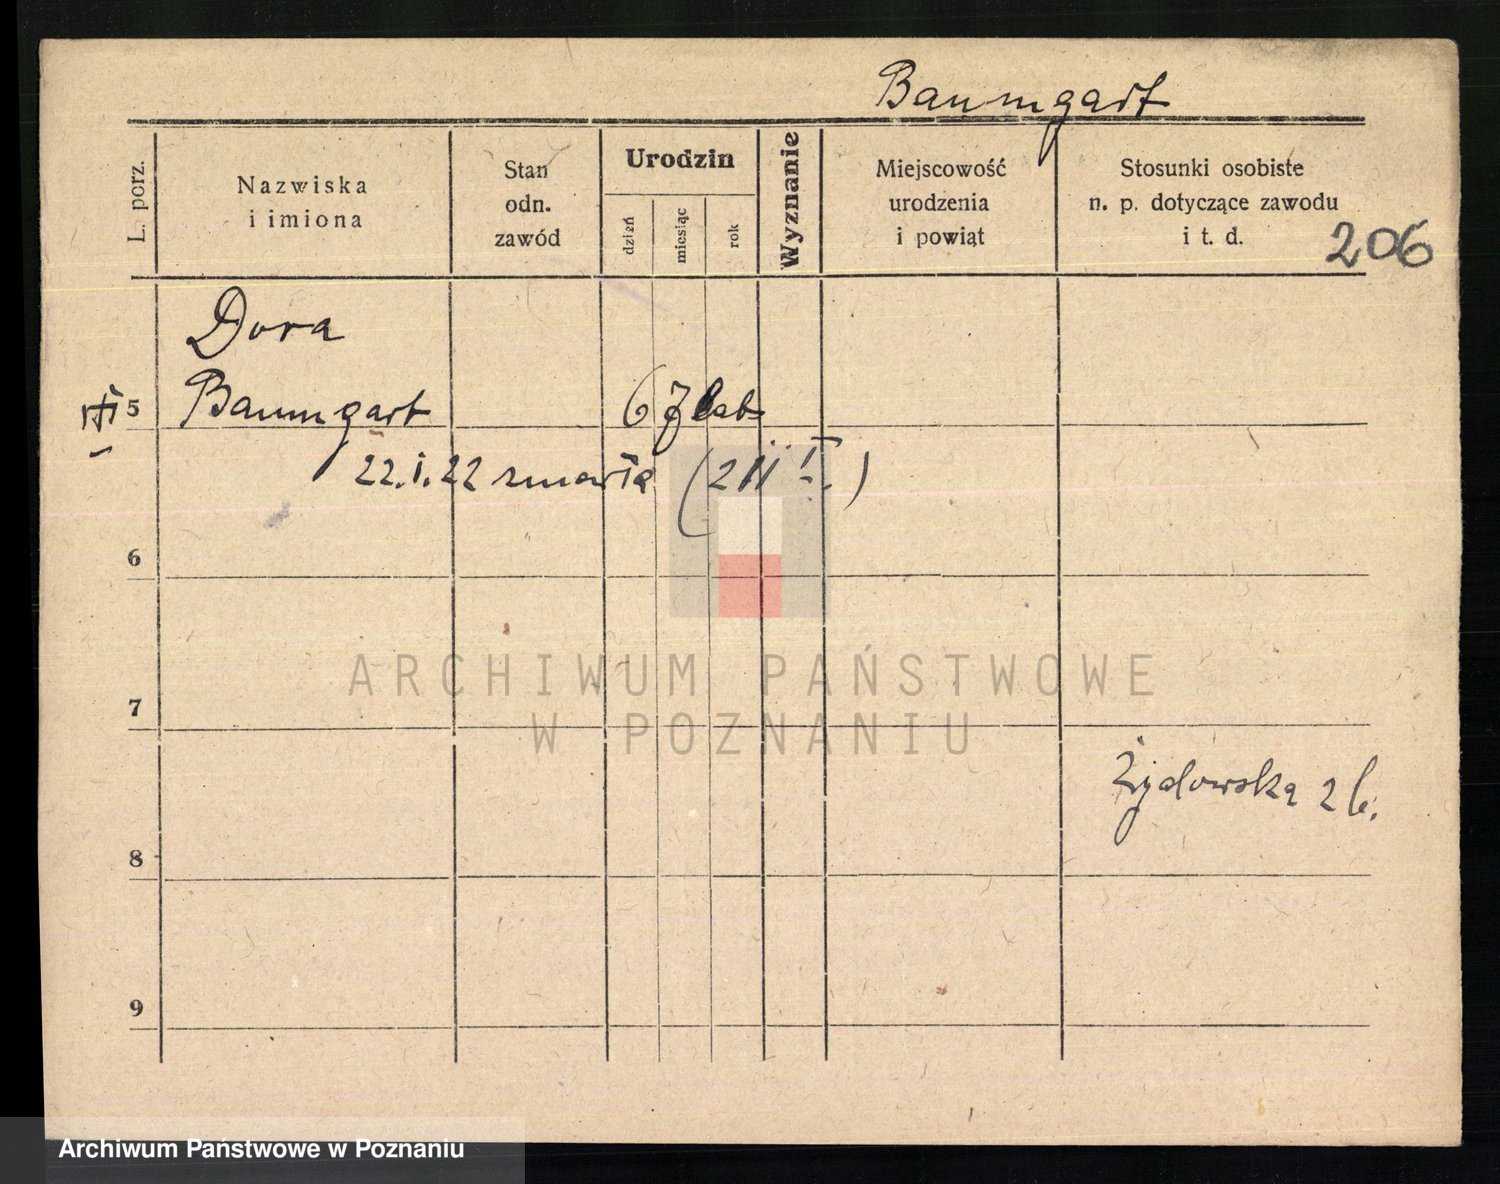 Baumgart
L. porz.
Nazwiska
i imiona
Stan
odn.
zawód
Urodzin
dzień
miesiąc
rok
Wyznanie
Miejscowość
urodzenia
i powiąt
Stosunki osobiste
n. p. dotyczące zawodu
i t. d.
206
Dora
5 Baumgart
22.I.22 zmarła
6
7
Żydowska 26.
8
9
ARCHIWUM PAŃSTWOWE
W POZNANIU
Archiwum Państwowe w Poznaniu